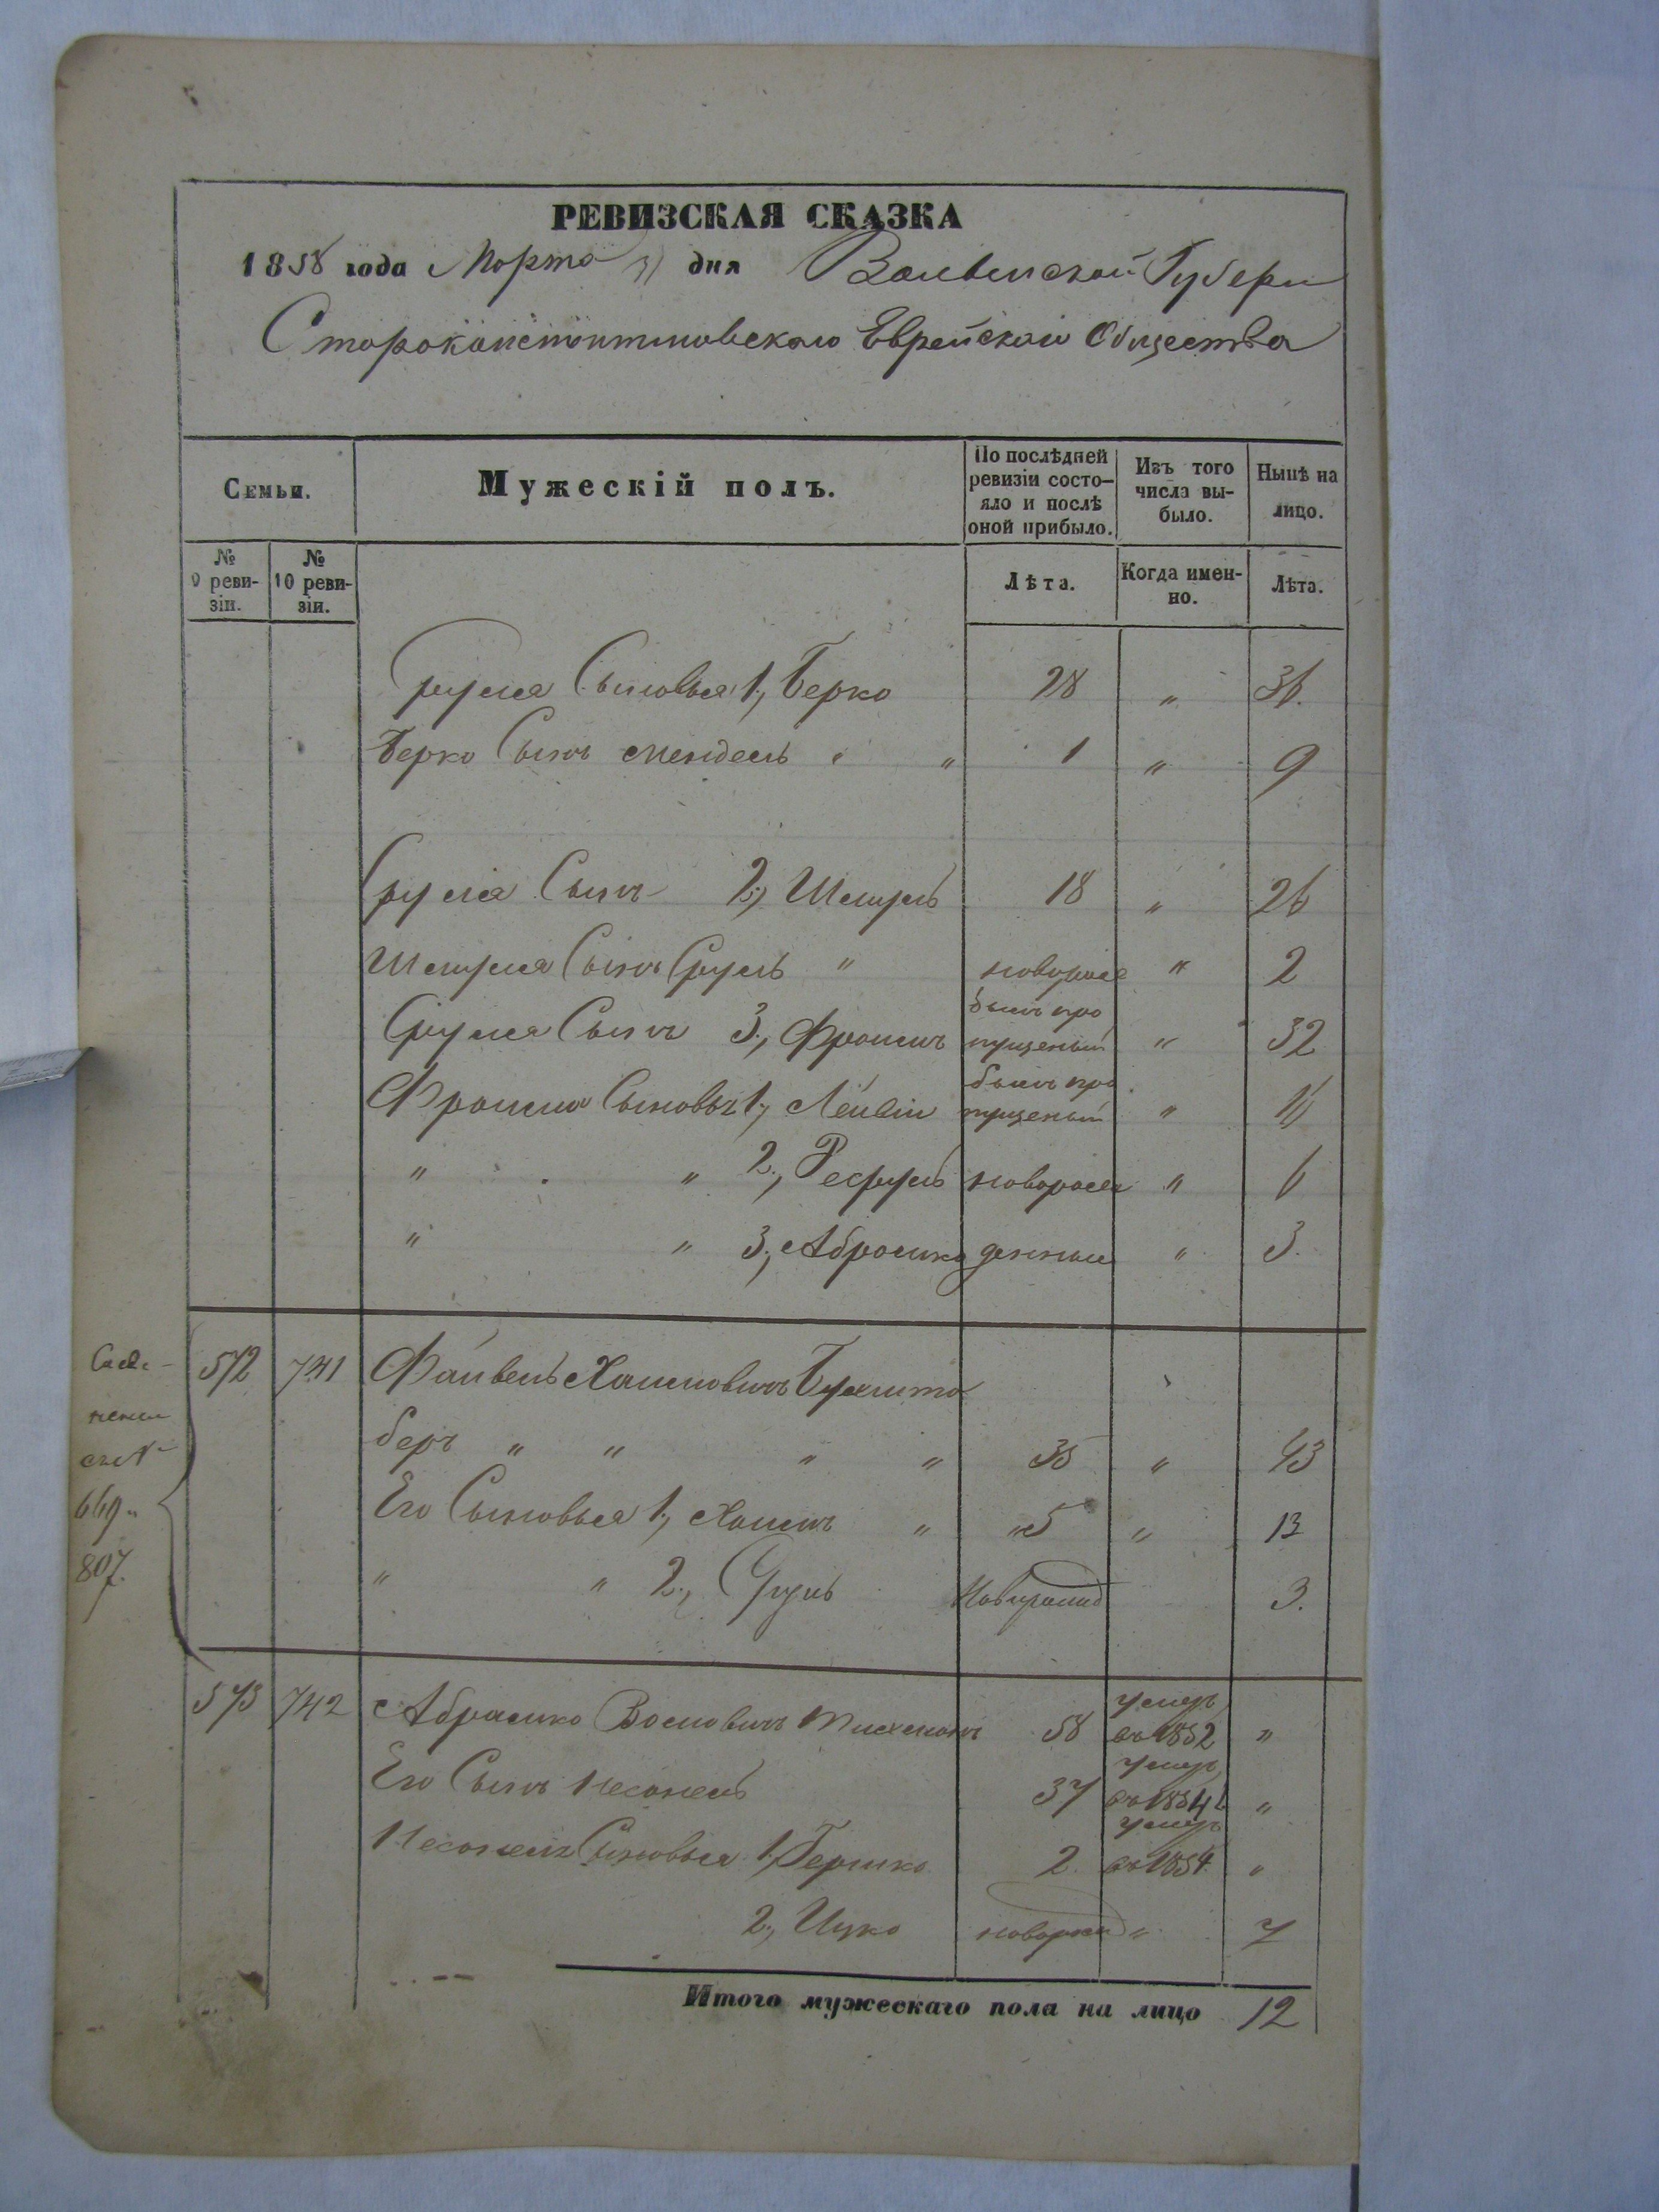 РЕВИЗСКАЯ СКАЗКА
1858 года Марта 31 дня Волынской Губерн
Староконстантиновскаго Еврейскаго Общества
Семьи.
Мужескій полъ.
По послѣдней ревизіи состо-
яло и послѣ оной прибыло.
Изъ того числа вы-
было.
Нынѣ на лицо.
№ 9 реви-
зіи.
№ 10 реви-
зіи.
Лѣта.
Когда имен-
но.
Лѣта.
Сруля Сыновья 1, Берко 28 " 36.
Берко Сынъ Мендель " " 1 " 9
Сруля Сынъ 2, Шмуль 18 " 26
Шмуля Сынъ Сруль " новорож " 2
Сруля Сынъ 3, Фроимъ былъ про
пущеный " 32
Фроима Сыновья 1, Лейвій былъ про
пущеный "
" " 2, новорож " 6
" " 3, Абрамко денные " 3.
572 741 Файвель Хаимовичъ
беръ " " " " 35 " 43
Его Сыновья 1, Хаимъ " " 5 " 13
" " 2, Сруль Новорожд 3.
669 "
807.
573 742 Абрамко 58 умеръ
въ 1852 "
Его Сынъ 37 умеръ
въ 1854 "
Сыновья 1, Гершко 2. умеръ
въ 1854. "
2, Ицко новорож " 7
Итого мужескаго пола на лицо 12